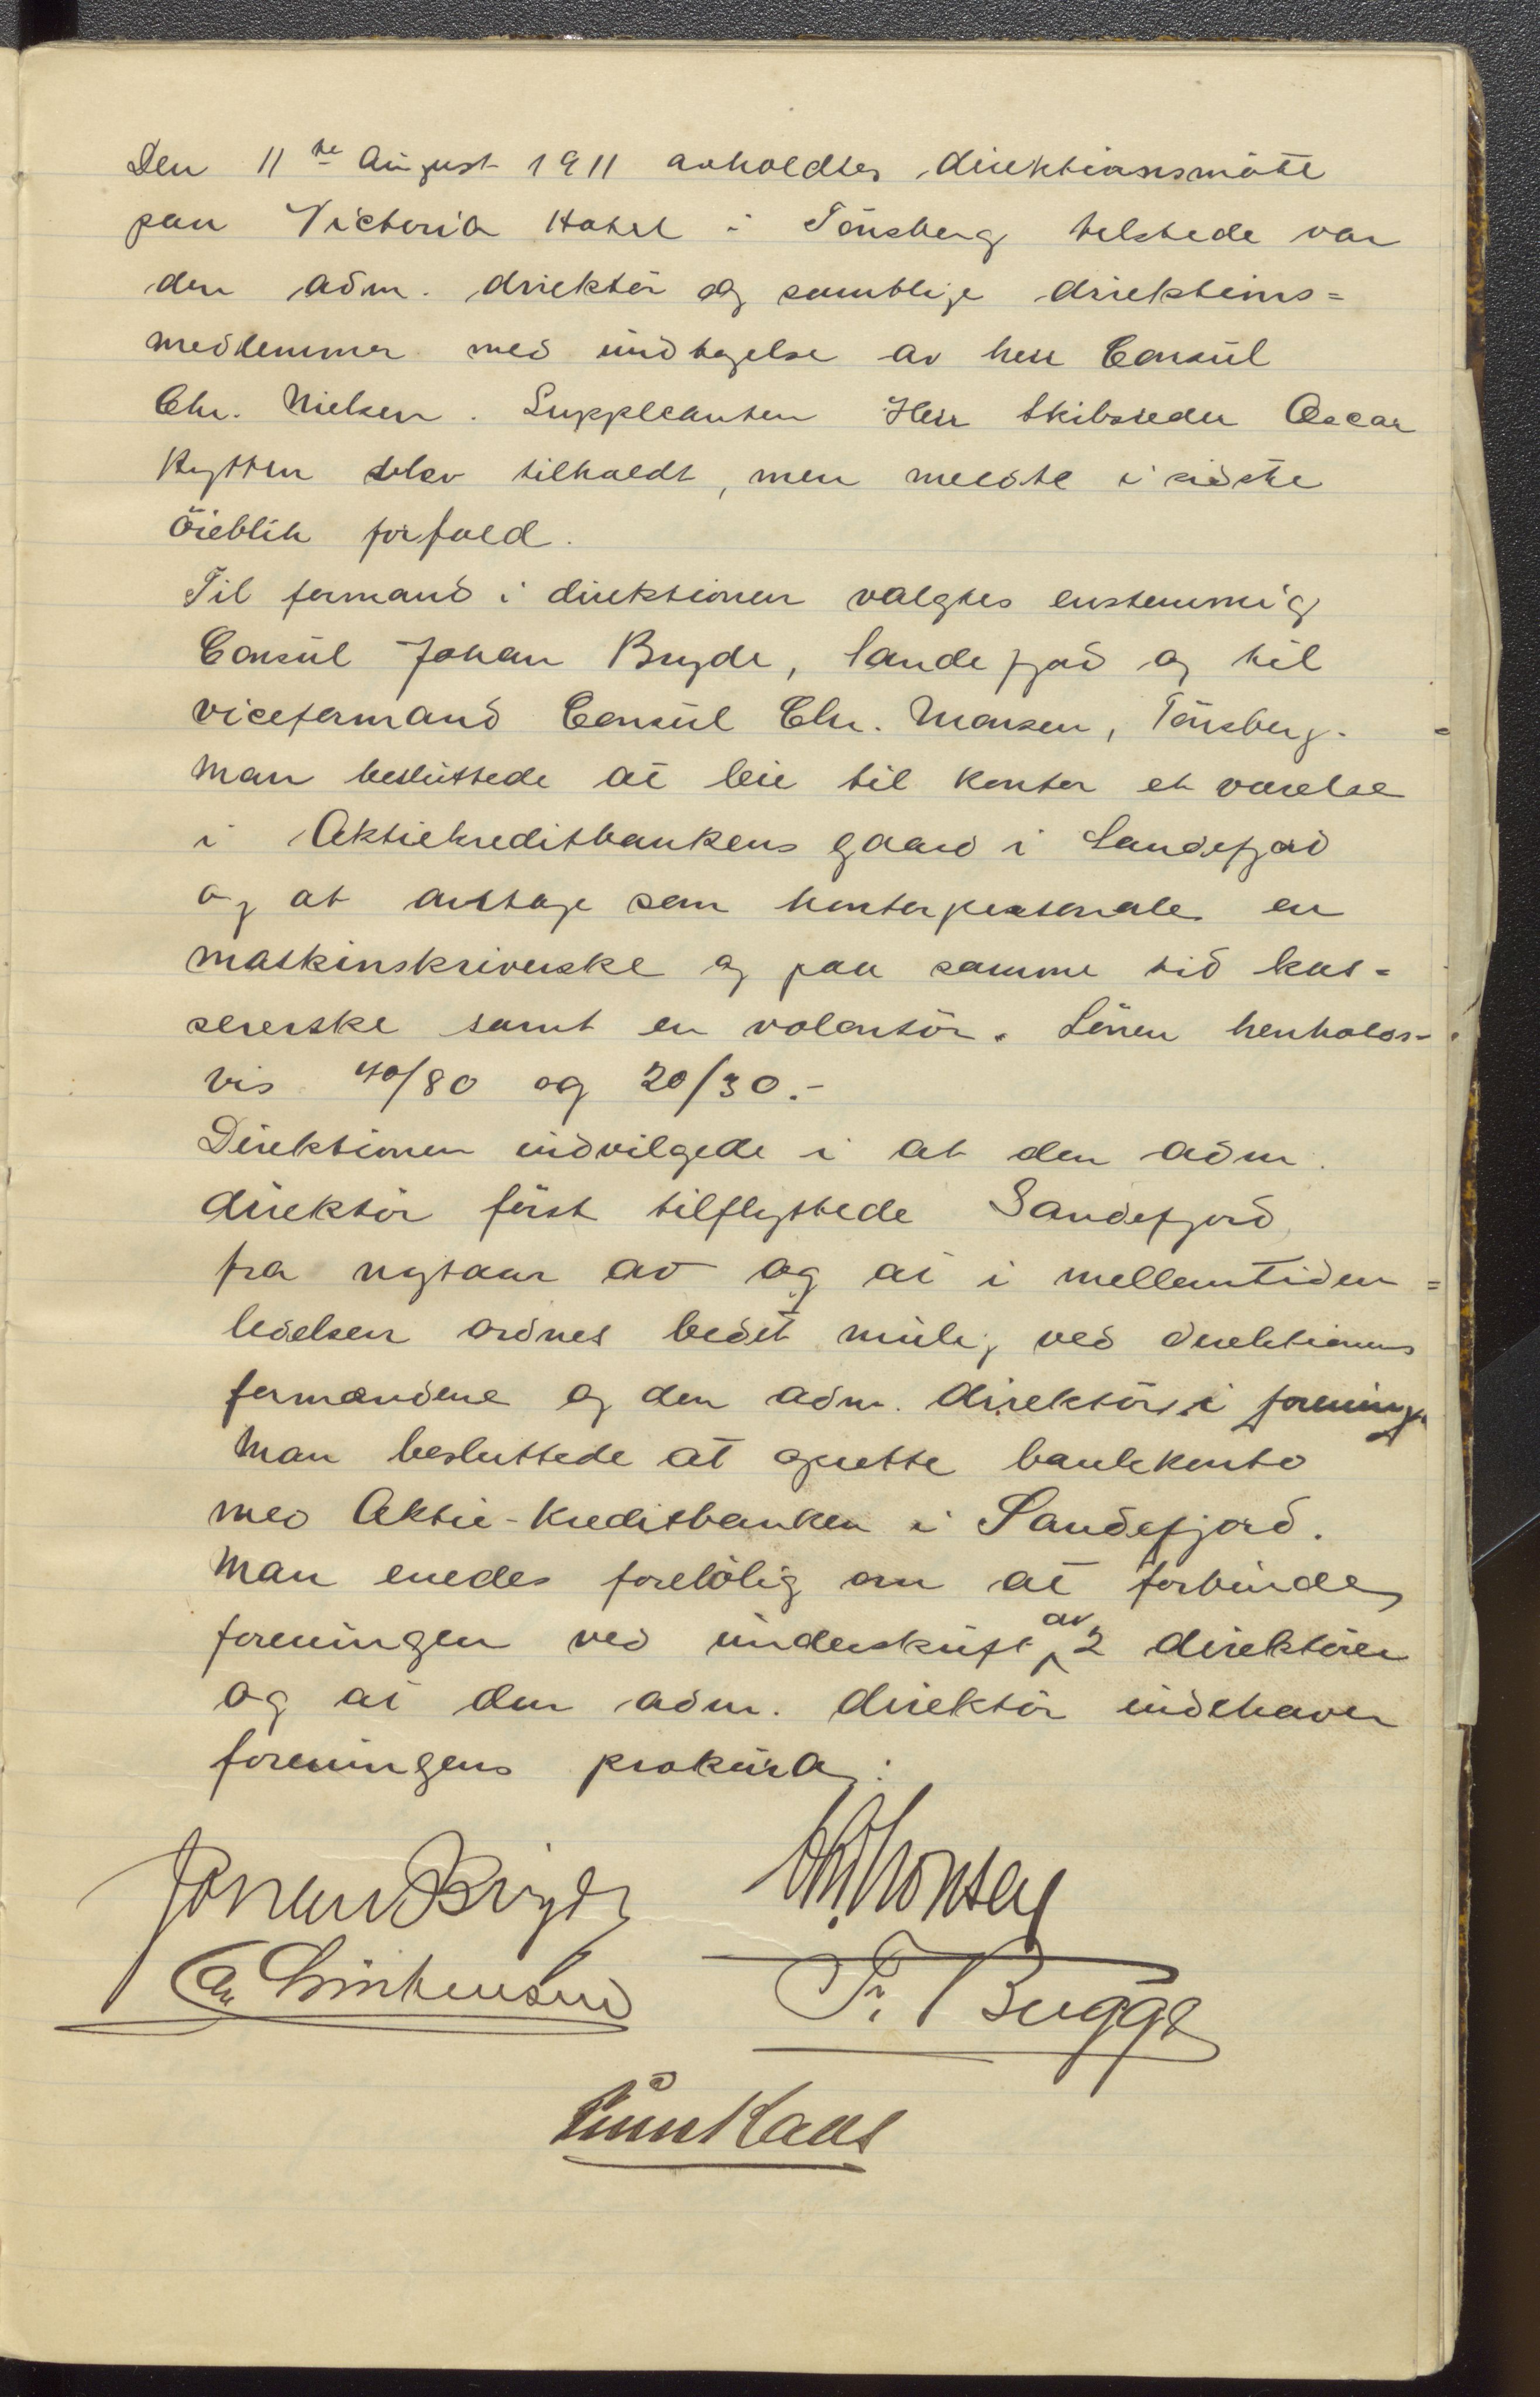 Den 11te August 1911 avholdtes direktionsmöte
paa Victoria Hotel i Tönsberg tilstede var
den adm. direktör og samtlige direktions=
medlemmer med undtagelse av herr Consul
Chr. Nielsen. Suppleanten Herr Skibsreder Oscar
blev tilkaldt, men meldte i sidste
öieblik forfald.
Til formand i direktionen valgtes enstemmig
Consul Johan Bryde, Sandefjord og til
viceformand Consul Chr. Monsen, Tönsberg.
Man besluttede at leie til kontor et værelse
i Aktiekreditbankens gaard i Sandefjord
og at antage som kontorpersonale en
maskinskriverske og paa samme tid kas=
sererske samt en volontör. Lönen henholds-
vis 40/80 og 20/30.-
Direktionen indvilgede i at den adm.
direktör först tilflyttede Sandefjord
fra nytaar av og at i mellemtiden
ledelsen ordnes bedst mulig ved direktionens
formændene og den adm. direktör i forening.
Man besluttede at oprette bankkonto
med Aktie-Kreditbanken i Sandefjord.
Man enedes forelöbig om at forbinde
foreningen ved underskrift av 2 direktörer
og at den adm. direktör indehaver
foreningens prokura.
Johan Bryde Chr. Monsen
Chr Christensen Fr. Bugge